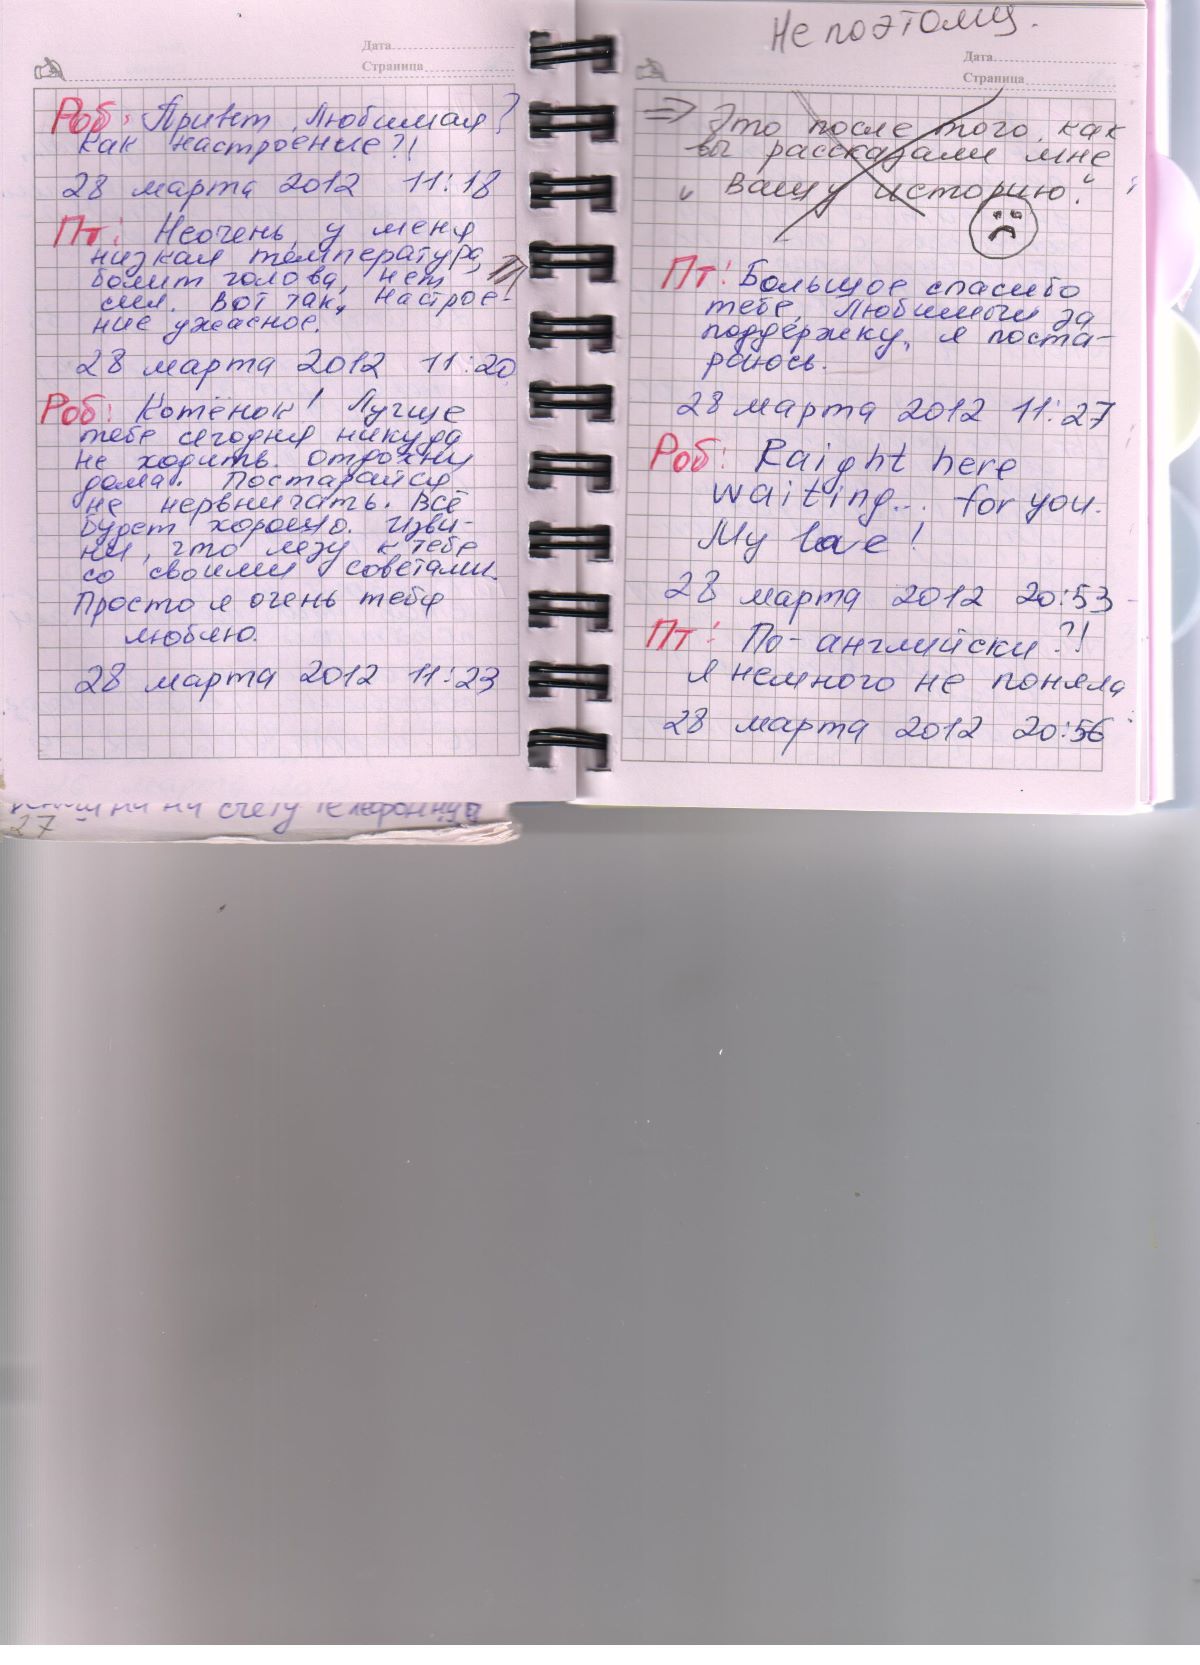 Дата
Страница
Роб: Привет Любимая?
Как настроение?!
28 марта 2012 11:18
Пт: Неочень, у меня
низкая температура,
болит голова, нет
сил. Вот так, настрое-
ние ужасное.
28 марта 2012 11:20
Роб: Котёнок! Лучше
тебе сегодня никуда
не ходить. отдохни
дома. Постарайся
не нервничать. Всё
будет хорошо. Изви-
ни, что лезу к тебе
со своими советами.
Просто я очень тебя
люблю.
28 марта 2012 11:23
счету
27
Не поэтому.
Дата
Страница
Это после того, как
вы рассказали мне
"Вашу историю."
Пт: Большое спасибо
тебе, Любимый за
поддержку, я поста-
раюсь.
28 марта 2012 11:27
Роб: Raight here
waiting... for you.
My love!
28 марта 2012 20:53
Пт: По-английски?!
я немного не поняла
28 марта 2012 20:56